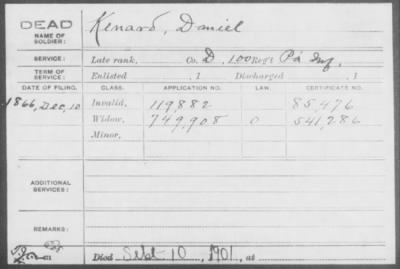 DEAD Kenard, Daniel
NAME OF
SOLDIER:
SERVICE: Late rank, Co. D, 100 Reg't Pa Inf.
TERM OF
SERVICE: Enlisted , 1 Discharged , 1
DATE OF FILING. CLASS. APPLICATION NO. LAW. CERTIFICATE NO.
1866, Dec, 10 Invalid, 119882 85,476
Widow, 749,908 0 541,286
Minor,
ADDITIONAL
SERVICES:
REMARKS:
Died Sept 10, 1901, at